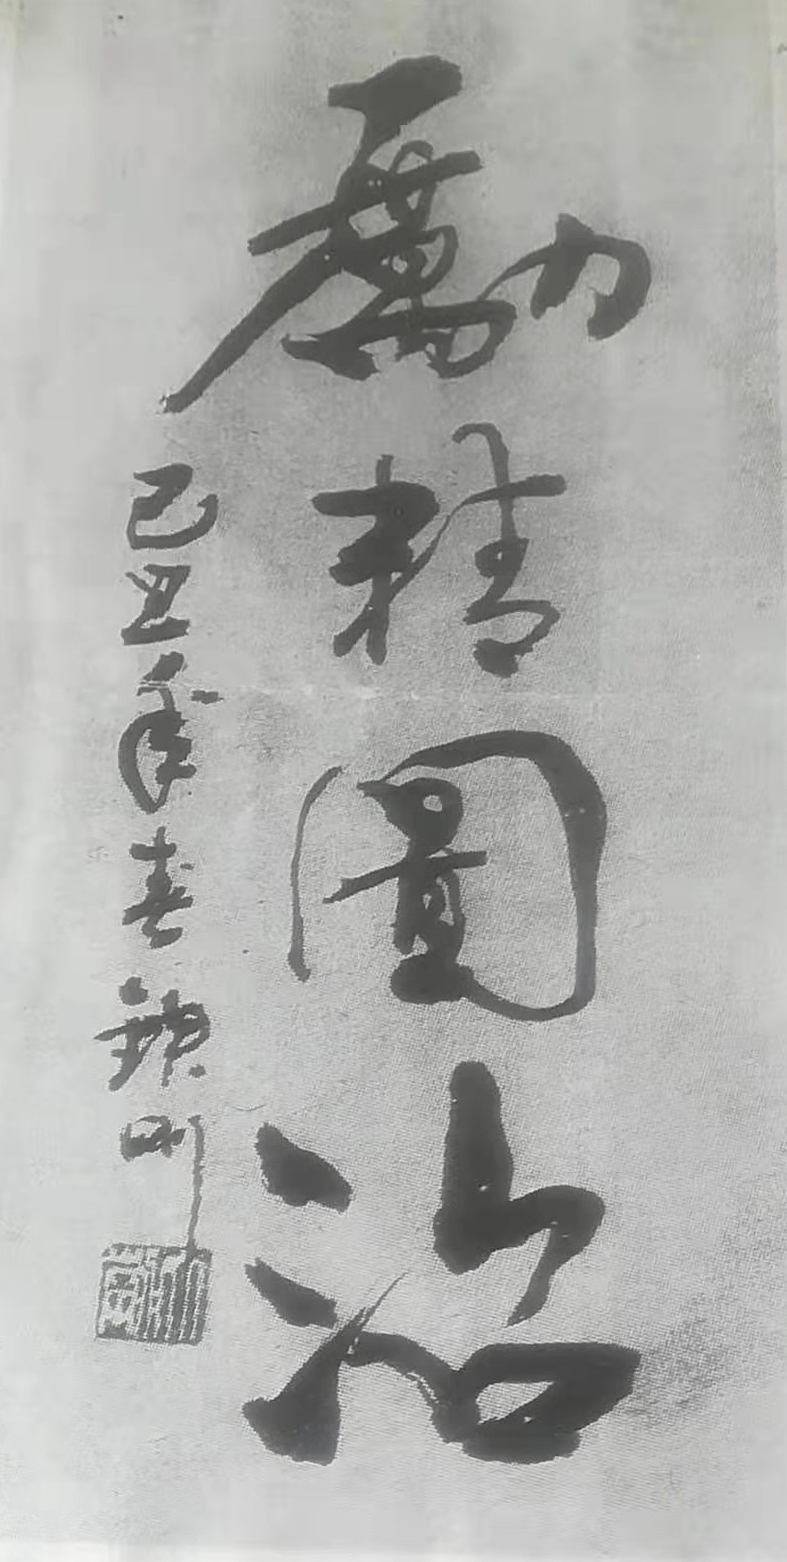 勵精圖治
己丑年春鐵剛